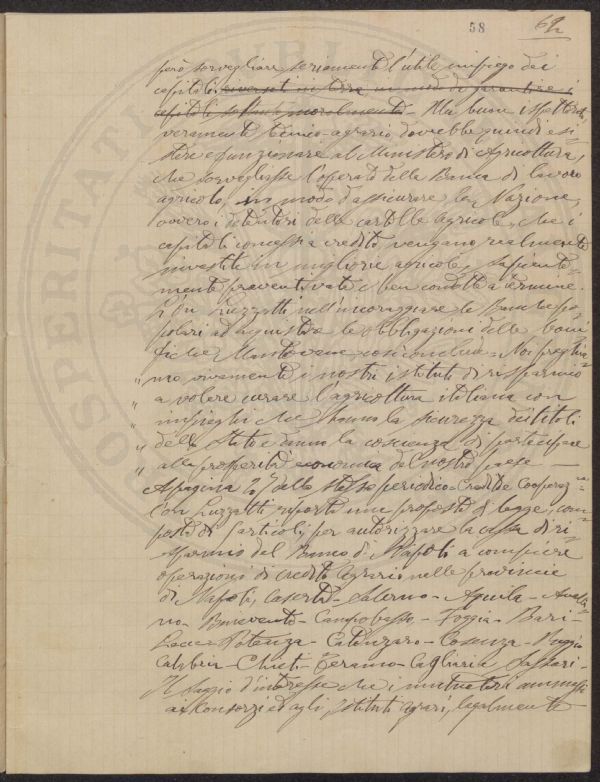 58 62
però sorvegliare seriamente l'utile impiego dei
capitoli diversi in terra in modo di garantire i
capitoli moralmente - Un buon ispettorato
veramente tecnico-agrario dovrebbe quindi esi=
stere e funzionare al Ministero di Agricoltura,
che sorvegliasse l'operato della Banca di lavoro
agricolo, in modo d'assicurare la Nazione,
ovvero i detentori delle cartelle agricole, che i
capitoli concessi a credito, vengano realmente
investiti in migliorie agricole, sapiente=
mente preventivate e ben condotte a termine.
L'On Luzzatti nell'incoraggiare le Banche po=
polari ad acquistare le obbligazioni delle boni=
fiche Mantovane così conclude - Noi preghia=
" mo vivamente i nostri istituti di risparmio
" a volere curare l'agricoltura italiana con
" impieghi che hanno la sicurezza dei titoli
" dello Stato e danno la coscienza di partecipare
" alla prosperità economica del nostro paese -
A pagina 27 dello stesso periodico Credito e Cooperaz=
l'on Luzzatti riporta una proposta di legge, com=
posta di 5 articoli, per autorizzare la cassa di ri=
sparmio del Banco di Napoli a compiere
operazioni di credito agrario nelle provincie
di Napoli, Caserta - Salerno - Aquila - Avelli=
no - Benevento - Campobasso, - Foggia - Bari -
Lecce - Potenza - Catanzaro - Cosenza - Reggio
Calabria - Chieti - Teramo - Cagliari e Sassari -
Il saggio d'interesse che i mutuatori ammessi
ai Consorzi ed agli istituti agrari, legalmente
OSPRITATI